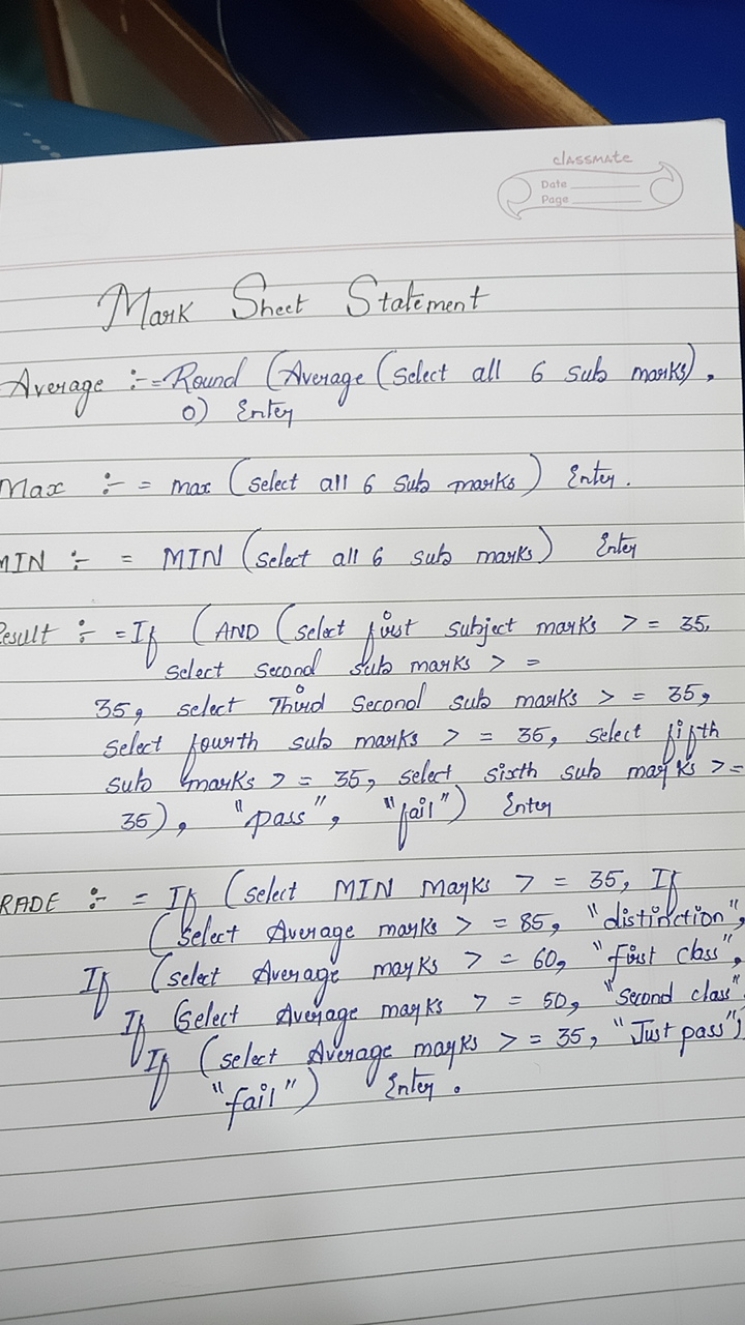 classmate
Date
Page
Mark Sheet Statement
Average :- = Round (Average (select all 6 sub marks),
0) Enter
Max :- = max (select all 6 sub marks) Enter.
MIN :- = MIN (select all 6 sub marks) Enter
Result :- = If (AND (select first subject marks > = 35,
select second sub marks > =
35, select Third Second sub marks > = 35,
select fourth sub marks > = 35, select fifth
sub marks > = 35, select sixth sub marks > =
35), "pass", "fail") Enter
RADE :- = If (select MIN marks > = 35, If
(select Average marks > = 85, "distinction",
If (select Average marks > = 60, "first class",
If (select Average marks > = 50, "second class",
If (select Average marks > = 35, "Just pass")
"fail") Enter.